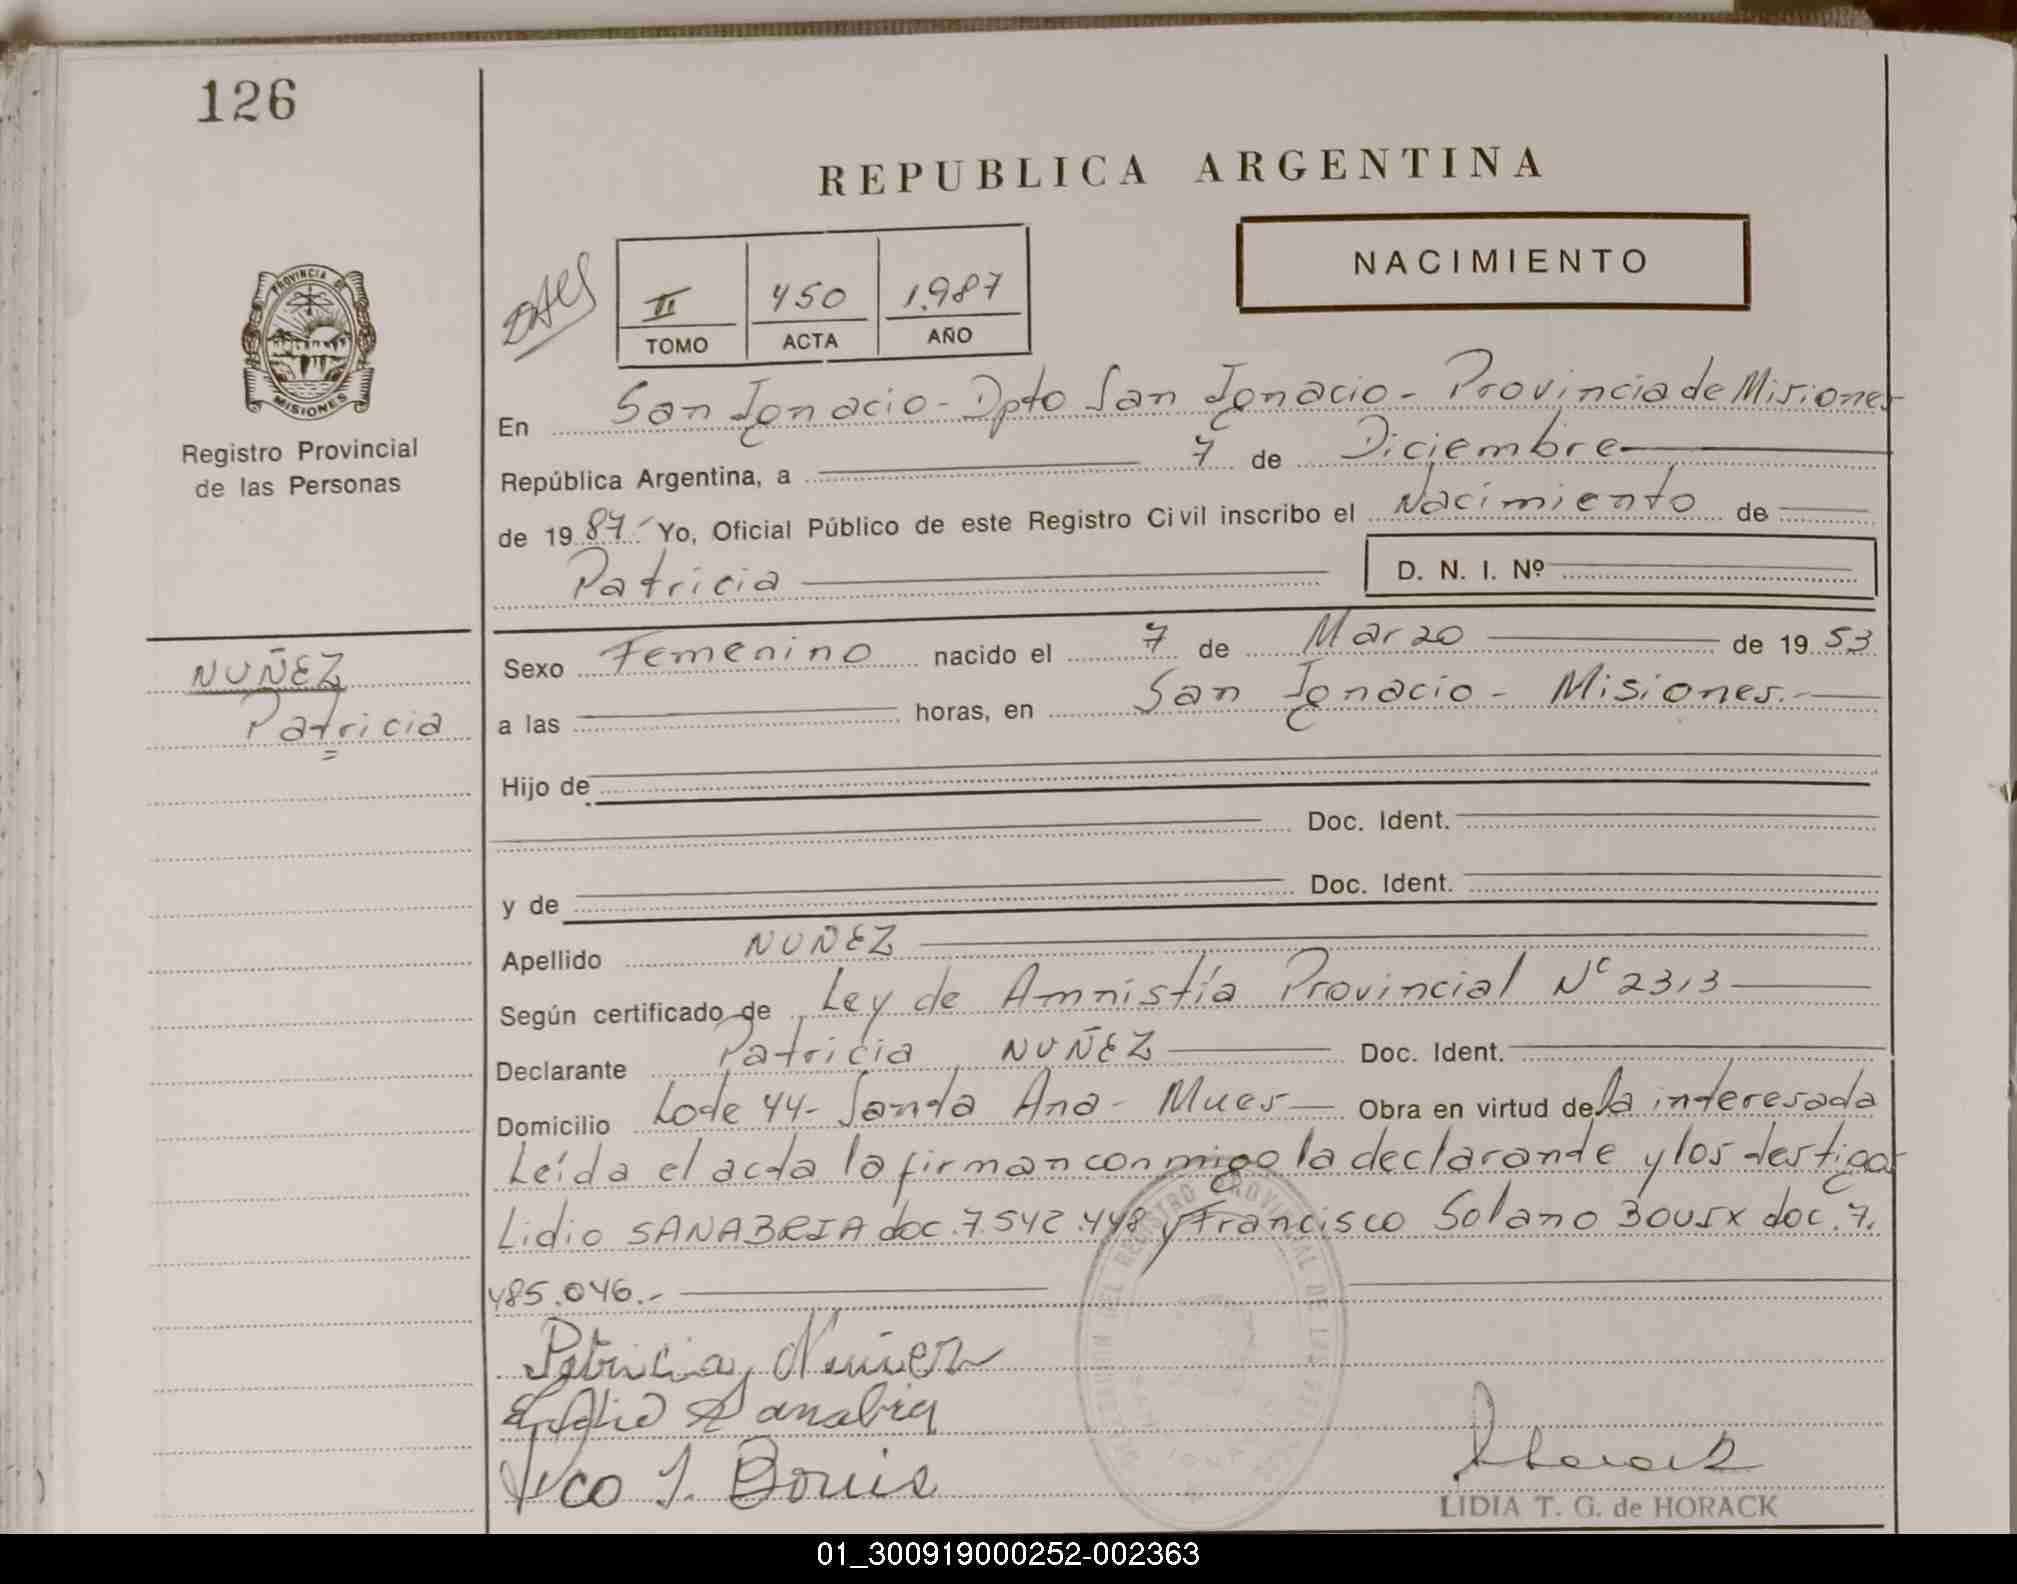 126
REPUBLICA ARGENTINA
NACIMIENTO
II 450 1.987
TOMO ACTA AÑO
PROVINCIA DE
MISIONES
Registro Provincial
de las Personas
En San Ignacio - Dpto San Ignacio - Provincia de Misiones
República Argentina, a 7 de Diciembre
de 19 87 Yo, Oficial Público de este Registro Civil inscribo el Nacimiento de
Patricia D. N. I. Nº
NUÑEZ
Patricia
Sexo Femenino nacido el 7 de Marzo de 19 53
a las horas, en San Ignacio - Misiones.-
Hijo de
Doc. Ident.
y de Doc. Ident.
Apellido NUÑEZ
Según certificado de Ley de Amnistía Provincial Nº 2313
Declarante Patricia NUÑEZ Doc. Ident.
Domicilio Lote 44- Santa Ana - Mnes Obra en virtud de la interesada
Leída el acta la firman conmigo la declarante y los testigos
Lidio SANABRIA doc. 7.542.448 y Francisco Solano Bouix doc. 7.
485.046.-
Patricia Nuñez
Lidio Sanabria
Fco S. Bouis
Horack
LIDIA T. G. de HORACK
01_300919000252-002363